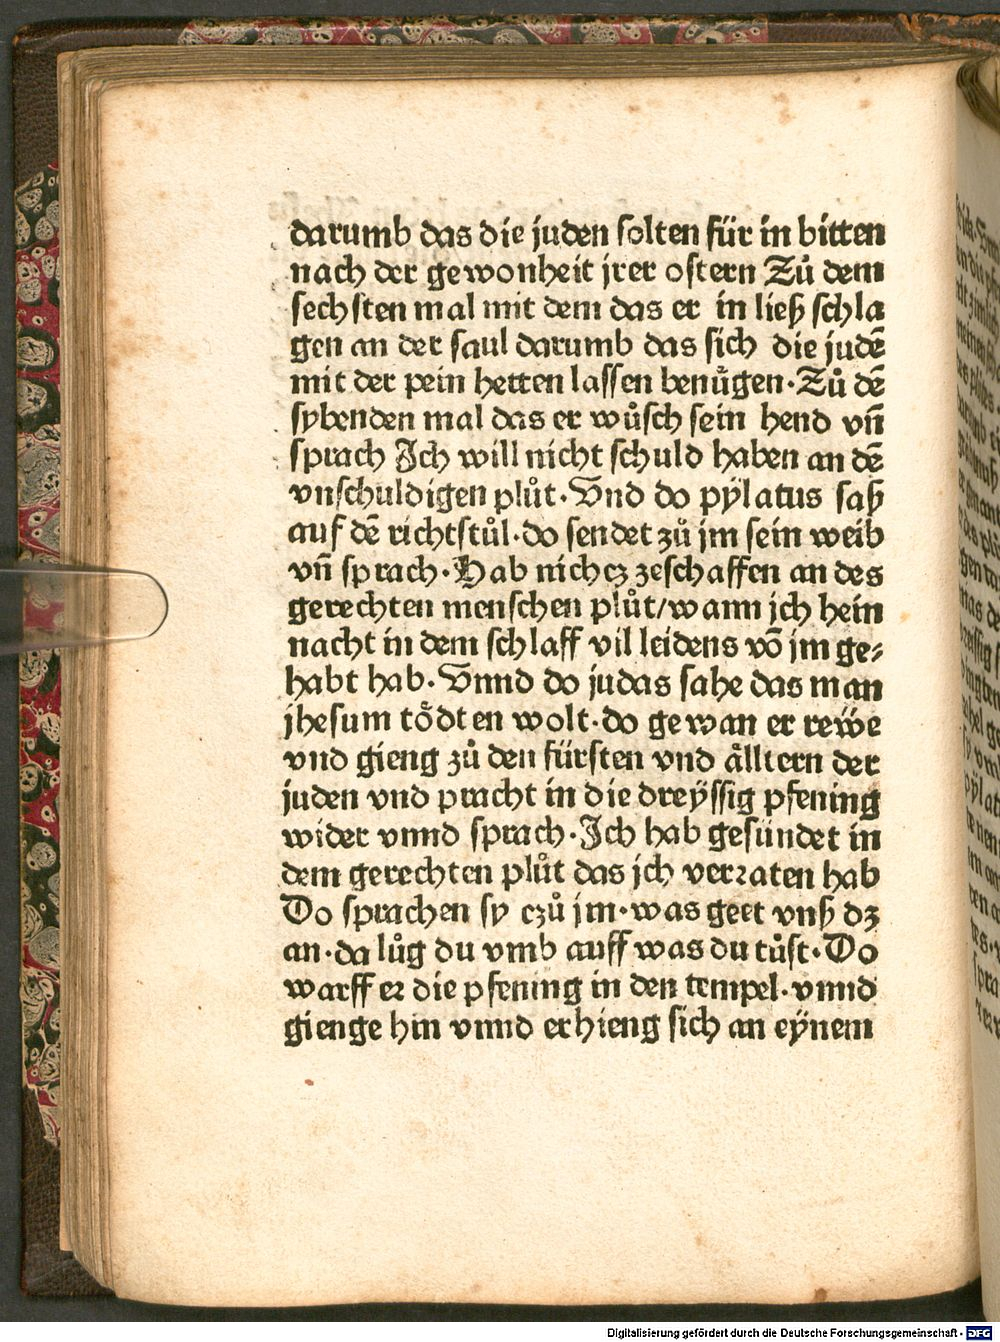 darumb das die juden solten für in bitten
nach der gewonheit jrer ostern Zů dem
sechsten mal mit dem das er in ließ schla
gen an der saul darumb das sich die judē
mit der pein hetten lassen benůgen·Zů dē
sybenden mal das er wůsch sein hend vn̄
sprach Ich will nicht schuld haben an dē
vnschuldigen plůt·Vnd do pÿlatus saß
auf dē richtstůl·do sendet zů jm sein weib
vn̄ sprach·Hab nichcz zeschaffen an des
gerechten menschen plůt/wann jch hein
nacht in dem schlaff vil leidens vō jm ge⸗
habt hab·Vnnd do judas sahe das man
jhesum tȍdten wolt·do gewan er rewe
vnd gieng zů den fürsten vnd ålltern der
juden vnd pracht in die dreÿssig pfening
wider vnnd sprach·Ich hab gesündet in
dem gerechten plůt das jch verꝛaten hab
Do sprachen sy czů jm·was geet vnß dz
an·da lůg du vmb auff was du tůst·Do
warff eꝛ die pfening in den tempel·vnnd
gienge hin vnnd erhieng sich an eÿnem
Digitalisierung gefördert durch die Deutsche Forschungsgemeinschaft - DFG